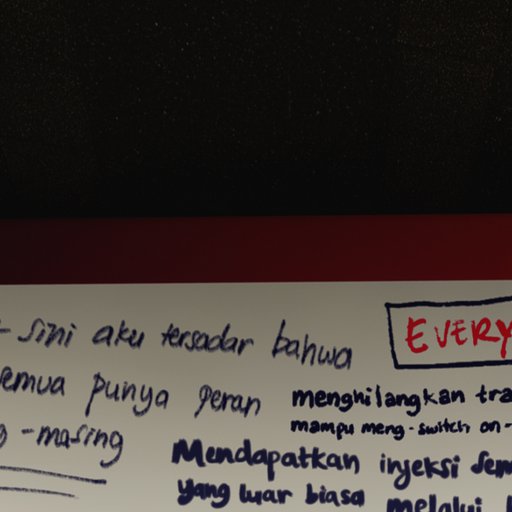 sini aku tersadar bahwa
emua punya peran
-masing
EVERY
menghilangkan tra
mampu meng-switch on-
Mendapatkan injeksi sem
yang luar biasa melalui